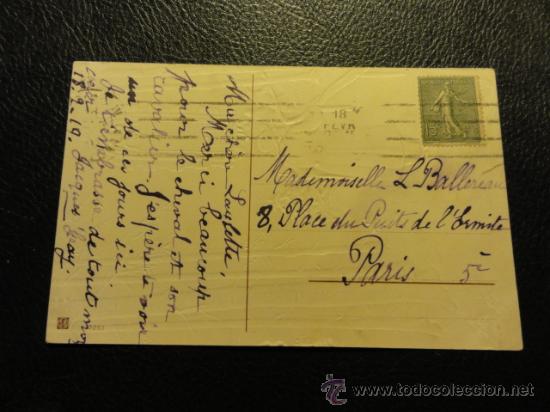 merci beaucoup
pour le cheval et son
cavalier. J'espère te voir
un de ces jours ici
Je t'embrasse de tout mon
18.2.19. Jacques
18
FEVR
Mademoiselle L. Ballereau
8, Place du Puits de l'Ermite
Paris 5e
todocoleccion
© www.todocoleccion.net